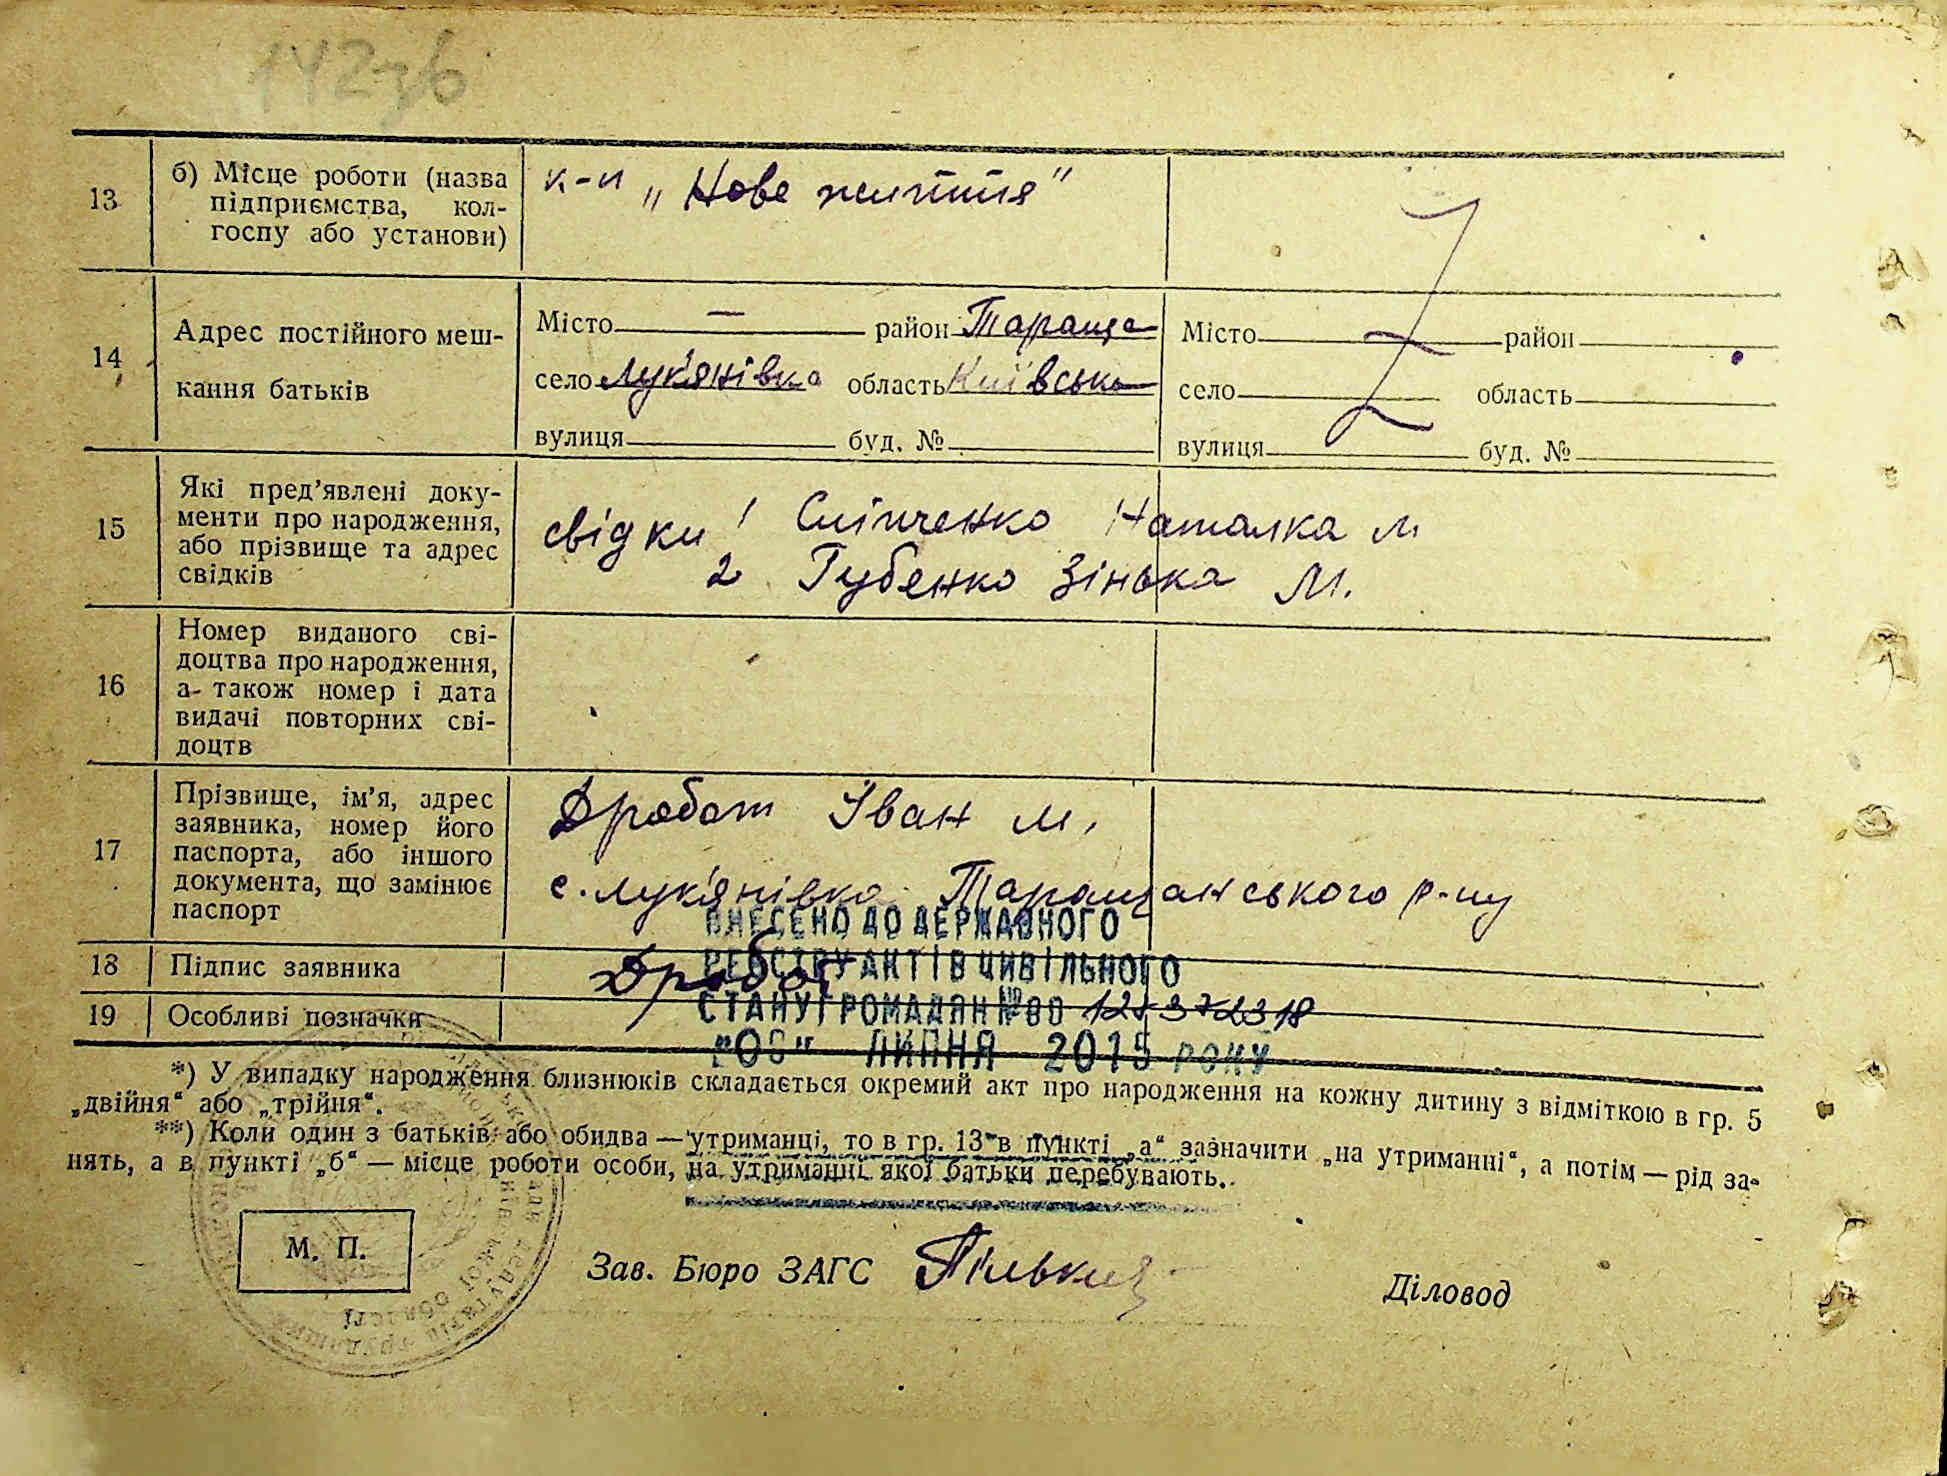 142зв
13
б) Місце роботи (назва
підприємства, кол-
госпу або установи)
к-п „Нове життя"
14
Адрес постійного меш-
кання батьків
Місто — район Тараща
село Лук'янівка область Київська
вулиця буд. №
Місто район
село область
вулиця буд. №
15
Які пред'явлені доку-
менти про народження,
або прізвище та адрес
свідків
свідки 1 Сліпченко Наталка М
2 Губенко Зінька М.
16
Номер виданого сві-
доцтва про народження,
а також номер і дата
видачі повторних сві-
доцтв
17
Прізвище, ім'я, адрес
заявника, номер його
паспорта, або іншого
документа, що замінює
паспорт
Дробот Іван М.
с. Лук'янівка Таращанського р-ну
18 Підпис заявника
Дробот
19 Особливі позначки
ВНЕСЕНО ДО ДЕРЖАВНОГО
РЕЄСТРУ АКТІВ ЦИВІЛЬНОГО
СТАНУ ГРОМАДЯН №00
ЛИПНЯ 2015 РОКУ
*) У випадку народження близнюків складається окремий акт про народження на кожну дитину з відміткою в гр. 5
„двійня“ або „трійня“.
**) Коли один з батьків або обидва — утриманці, то в гр. 13 в пункті „а“ зазначити „на утриманні“, а потім — рід за-
нять, а в пункті „б“ — місце роботи особи, на утриманні якої батьки перебувають.
М. П.
Зав. Бюро ЗАГС
Діловод